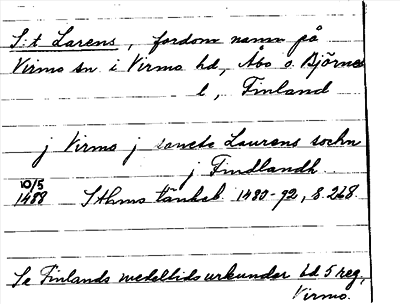 S:t Larens, fordom namn på
Virmo sn i Virmo hd, Åbo o. Björneb
l, Finland
j Virmo j sancte Laurens sochn
j Findlandh
10/5
1488 Sthms tänkeb. 1480-92, s. 268.
Se Finlands medeltidsurkunder bd 5 reg,
Virmo.